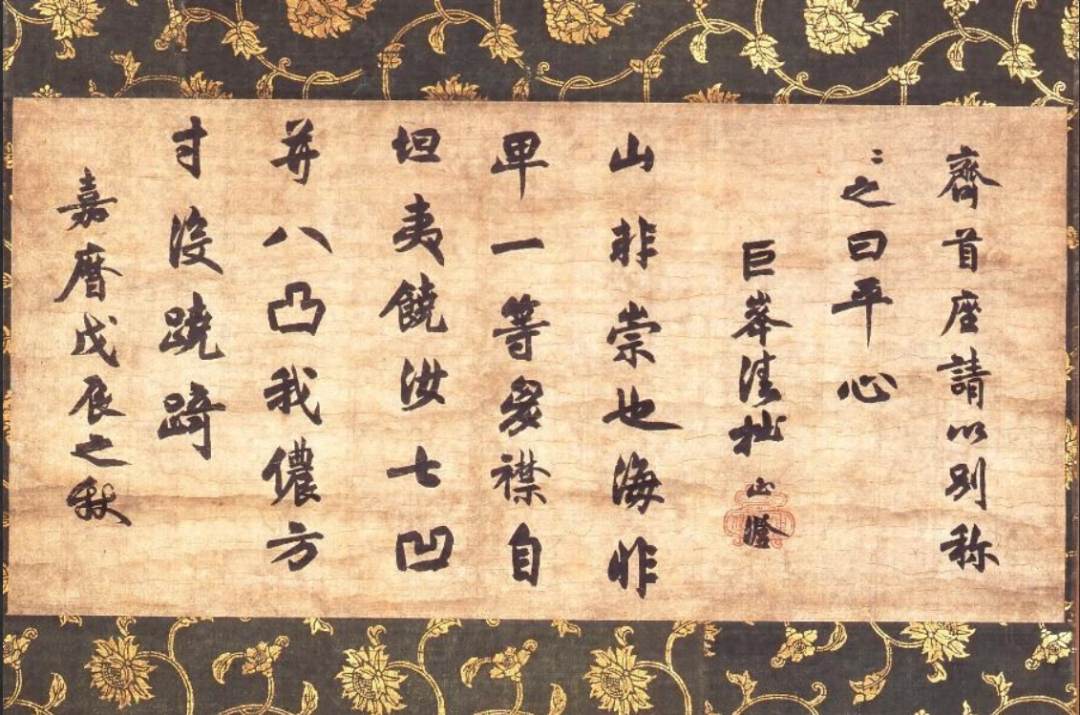 齊首座請以別称
〻之曰平心
巨峯清拙 正澄
山非崇也海非
卑一等胸襟自
坦夷饒汝七凹
并八凸我儂方
寸没蹺踦
嘉暦戊辰之秋